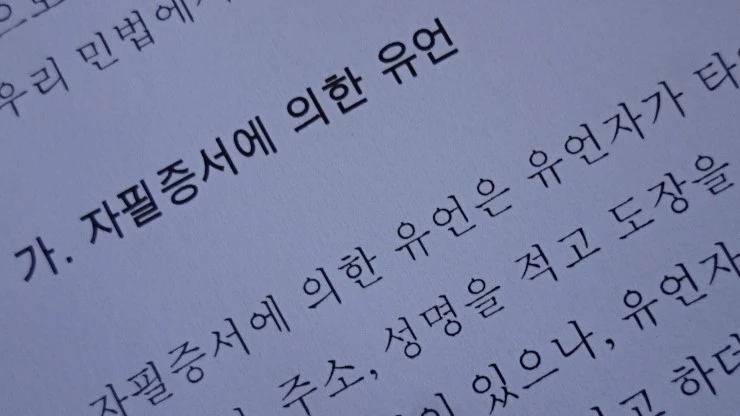 우리 민법에
가. 자필증서에 의한 유언
자필증서에 의한 유언은 유언자가
주소, 성명을 적고 도장을
있으나, 유언자
하더